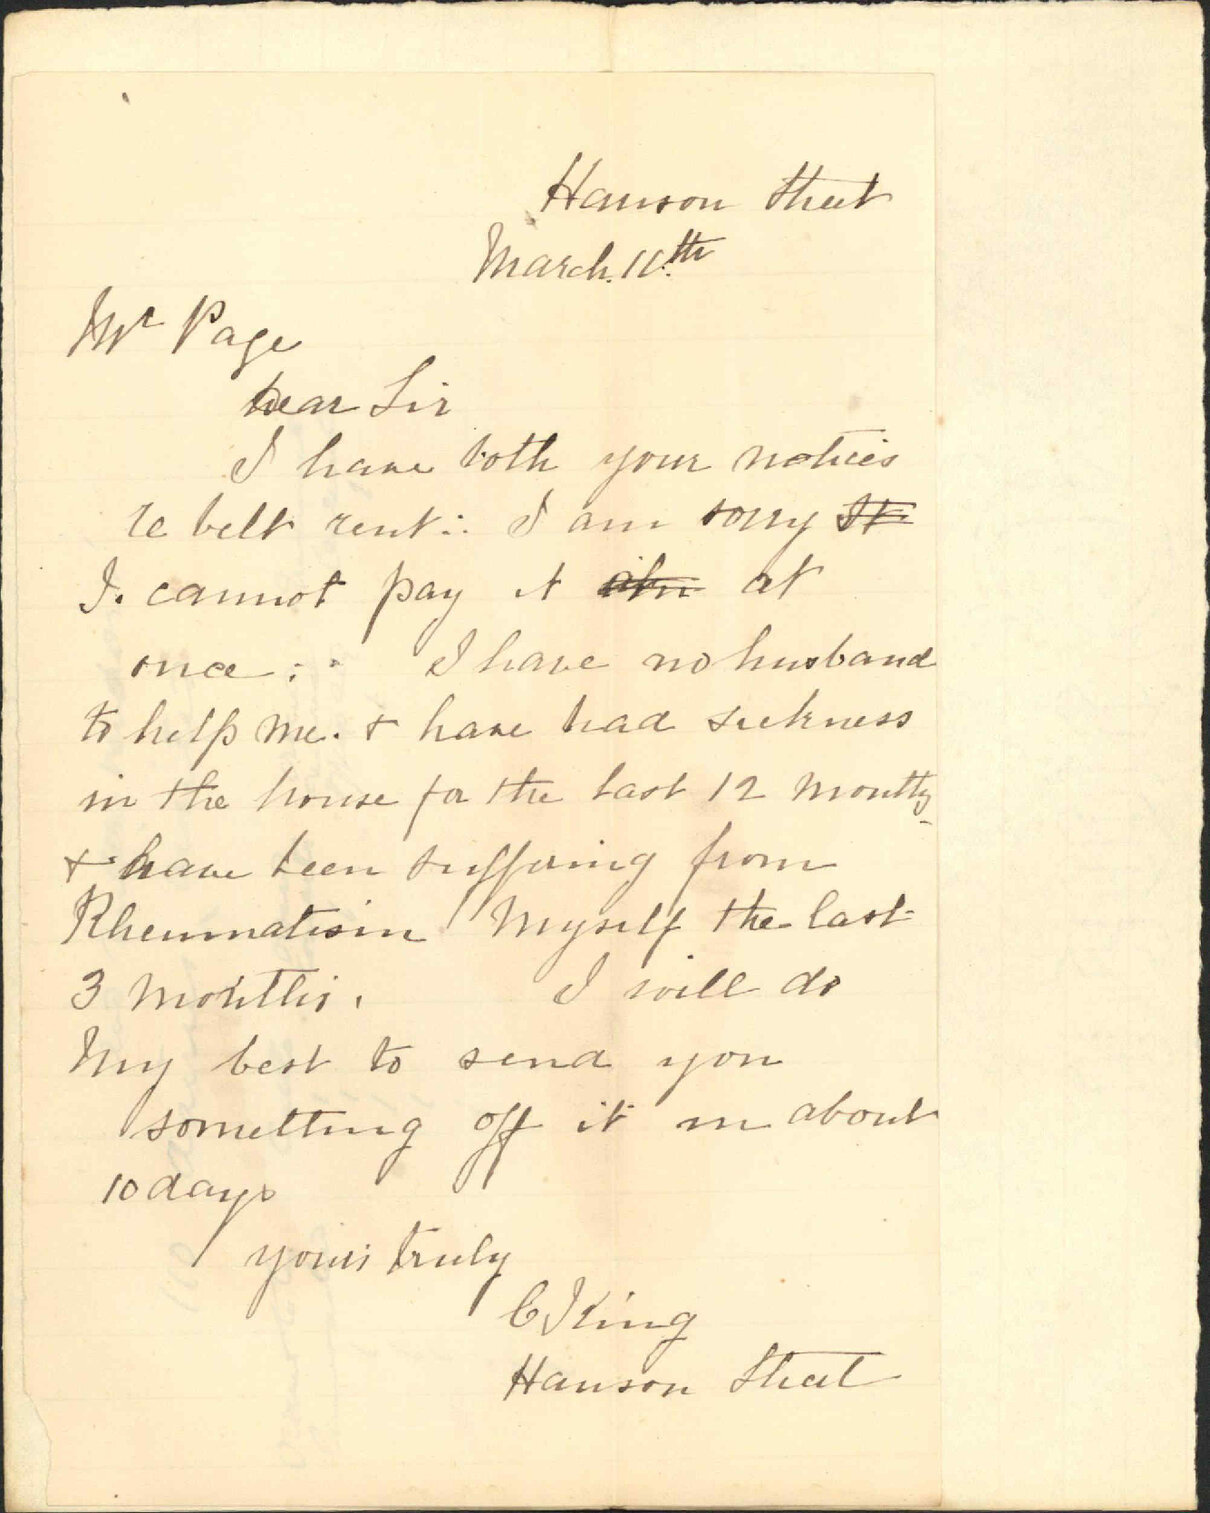 Hanson Street
March. 11th
Mr Page
Dear Sir
I have both your notices
re belt rent:. I am sorry
I. cannot pay it at
once :. I have no husband
to help me. & have had sickness
in the house for the last 12 months
& have been suffering from
Rheumatism Myself the last
3 Months. I will do
My best to send you
something off it in about
10 days
yours truly
C J King
Hanson Street